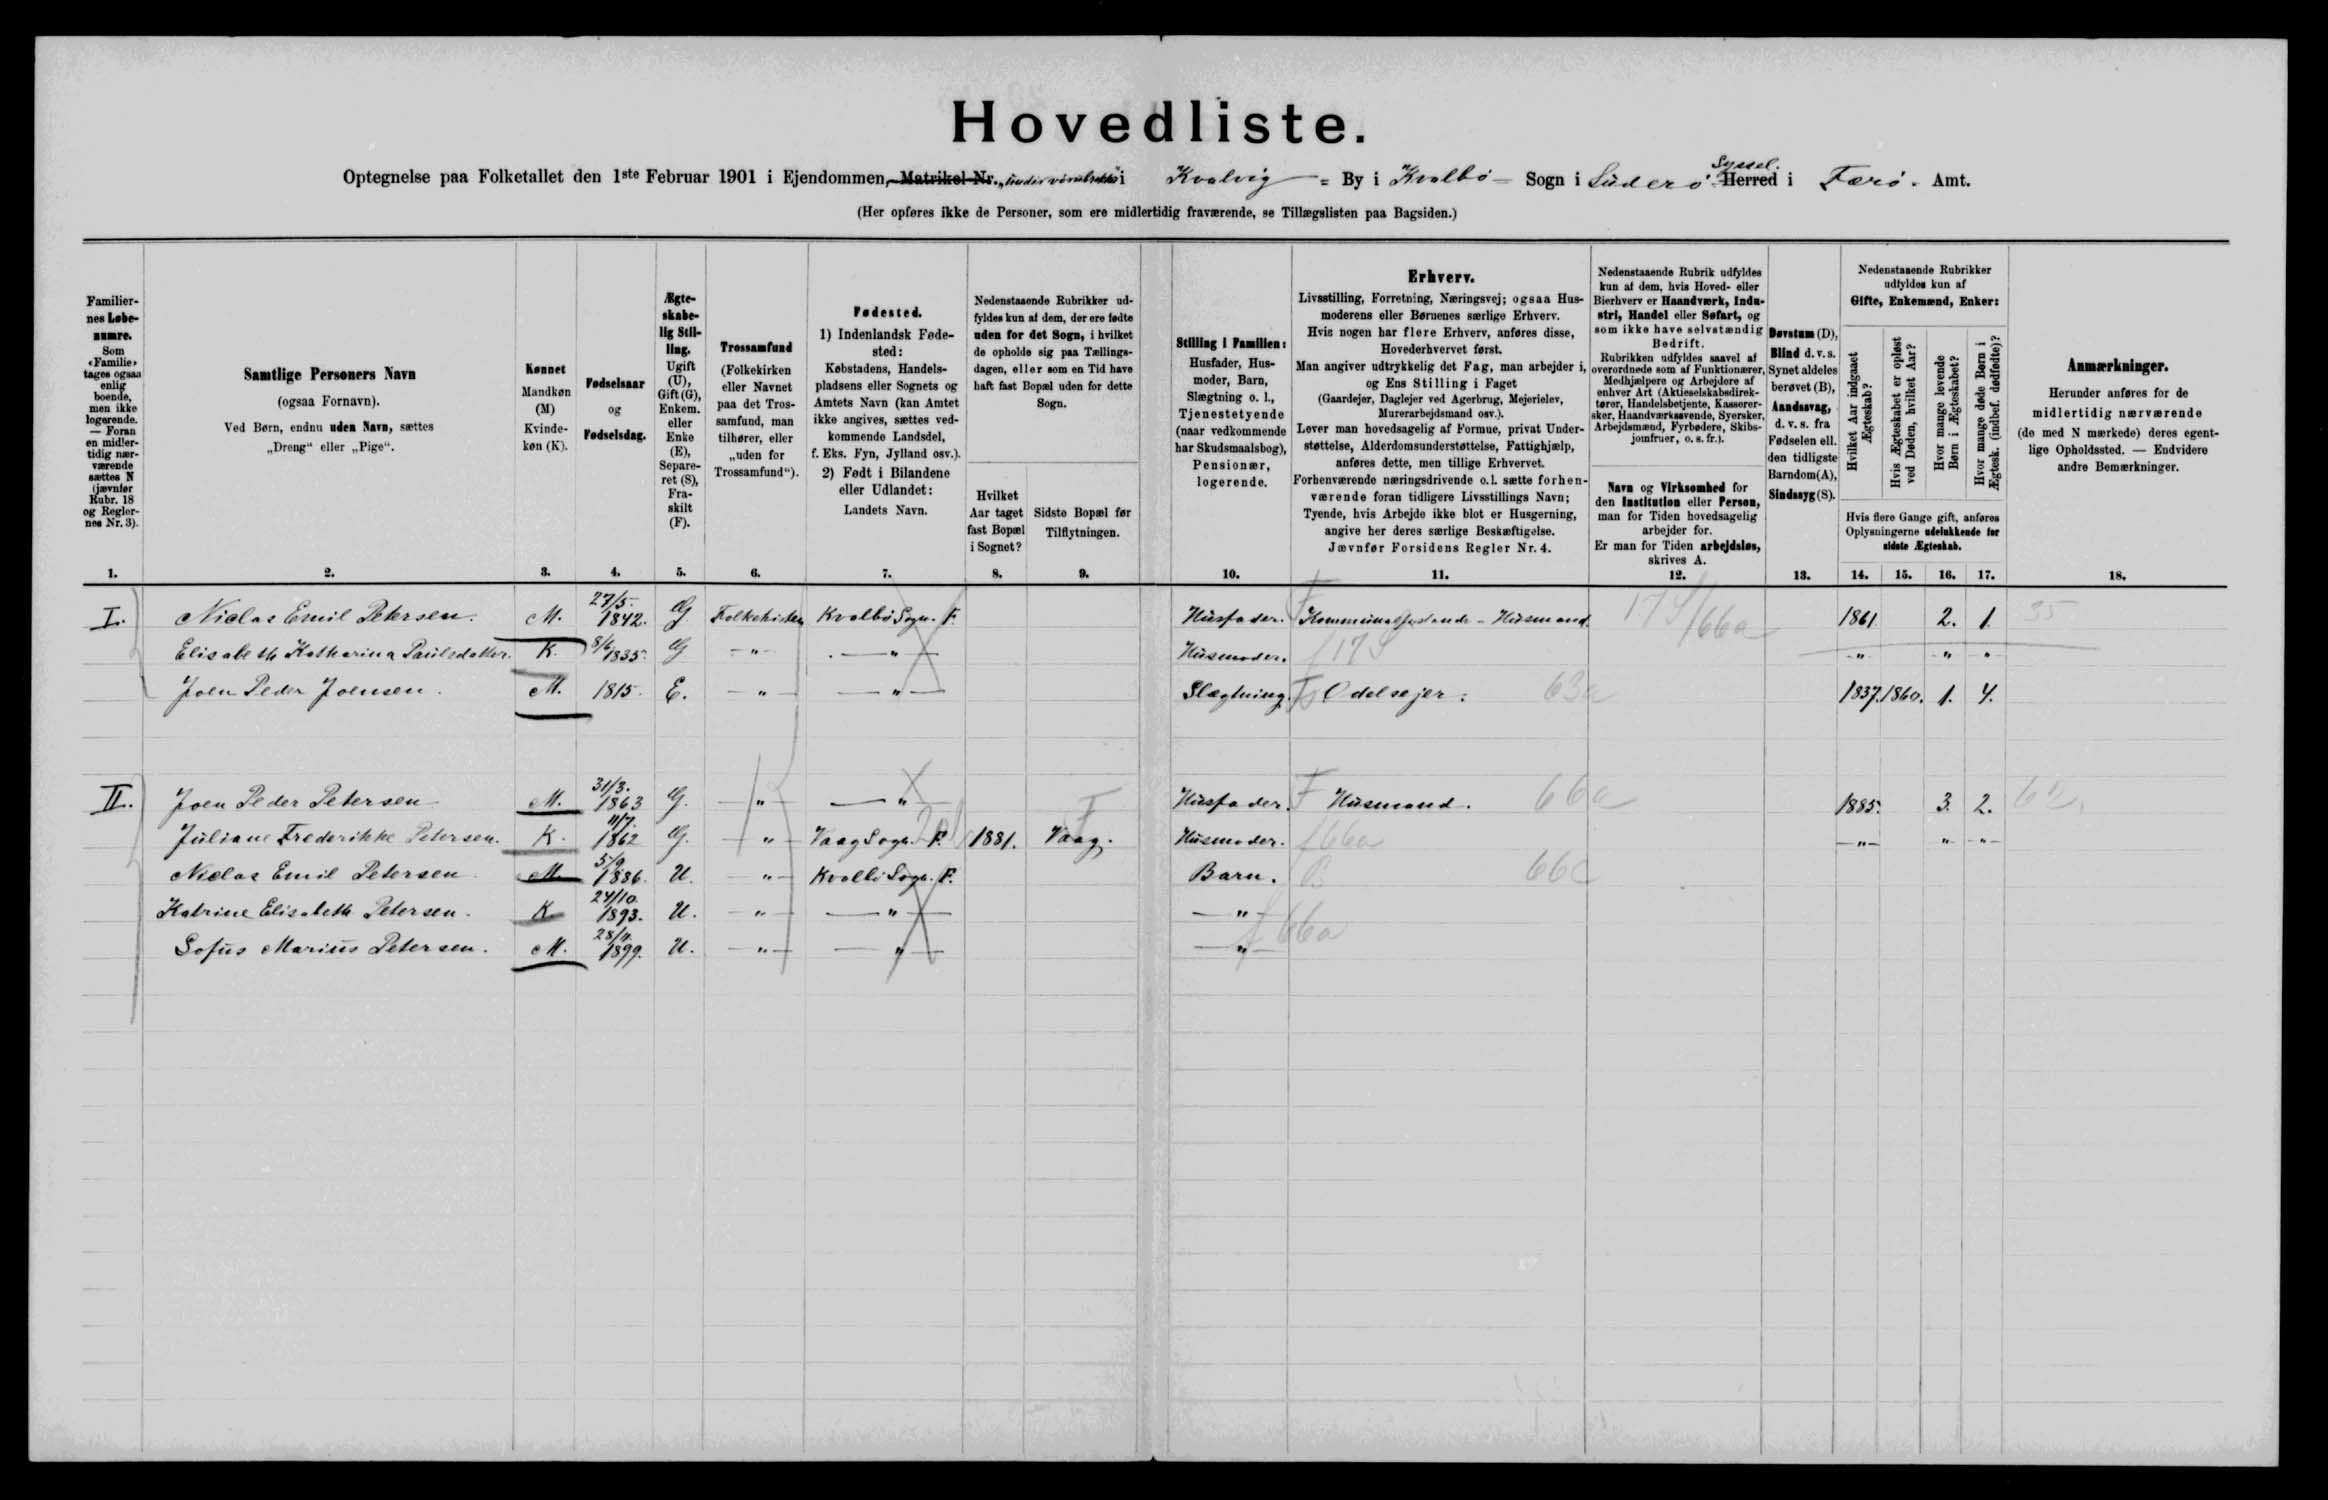 Hovedliste.
Optegnelse paa Folketallet den 1ste Februar 1901 i Ejendommen, Matrikel Nr. i Kvalvig = By i Kvalbö = Sogn i Suderö Syssel. Herred i Færö. Amt.
(Her opføres ikke de Personer, som ere midlertidig fraværende, se Tillægslisten paa Bagsiden.)
Familiernes Løbenumre.
Som «Familie» tages ogsaa enlig boende, men ikke logerende. — Foran en midlertidig nærværende sættes N (jævnfør Rubr. 18 og Reglernes Nr. 3).
Samtlige Personers Navn
(ogsaa Fornavn).
Ved Børn, endnu uden Navn, sættes
„Dreng“ eller „Pige“.
Kønnet
Mandkøn (M)
Kvindekøn (K).
Fødselsaar
og
Fødselsdag.
Ægteskabelig Stilling.
Ugift (U), Gift (G), Enkem. eller Enke (E), Separeret (S), Fraskilt (F).
Trossamfund
(Folkekirken eller Navnet paa det Trossamfund, man tilhører, eller „uden for Trossamfund“).
Fødested.
1) Indenlandsk Fødested:
Købstadens, Handelspladsens eller Sognets og Amtets Navn (kan Amtet ikke angives, sættes vedkommende Landsdel, f. Eks. Fyn, Jylland osv.).
2) Født i Bilandene eller Udlandet:
Landets Navn.
Nedenstaaende Rubrikker udfyldes kun af dem, der ere fødte uden for det Sogn, i hvilket de opholde sig paa Tællingsdagen, eller som en Tid have haft fast Bopæl uden for dette Sogn.
Hvilket Aar taget fast Bopæl i Sognet?
Sidste Bopæl før Tilflytningen.
Stilling i Familien:
Husfader, Husmoder, Barn, Slægtning o. l., Tjenestetyende (naar vedkommende har Skudsmaalsbog), Pensionær, logerende.
Erhverv.
Livsstilling, Forretning, Næringsvej; ogsaa Husmoderens eller Børnenes særlige Erhverv.
Hvis nogen har flere Erhverv, anføres disse, Hovederhvervet først.
Man angiver udtrykkelig det Fag, man arbejder i, og Ens Stilling i Faget
(Gaardejer, Daglejer ved Agerbrug, Mejerielev, Murerarbejdsmand osv.).
Lever man hovedsagelig af Formue, privat Understøttelse, Alderdomsunderstøttelse, Fattighjælp, anføres dette, men tillige Erhvervet.
Forhenværende næringsdrivende o. l. sætte forhenværende foran tidligere Livsstillings Navn;
Tyende, hvis Arbejde ikke blot er Husgerning, angive her deres særlige Beskæftigelse.
Jævnfør Forsidens Regler Nr. 4.
Nedenstaaende Rubrik udfyldes kun af dem, hvis Hoved- eller Bierhverv er Haandværk, Industri, Handel eller Søfart, og som ikke have selvstændig Bedrift.
Rubrikken udfyldes saavel af overordnede som af Funktionærer, Medhjælpere og Arbejdere af enhver Art (Aktieselskabsdirektører, Handelsbetjente, Kasserersker, Haandværkssvende, Syersker, Arbejdsmænd, Fyrbødere, Skibsjomfruer, o. s. fr.).
Navn og Virksomhed for den Institution eller Person, man for Tiden hovedsagelig arbejder for.
Er man for Tiden arbejdsløs, skrives A.
Døvstum (D), Blind d. v. s. Synet aldeles berøvet (B), Aandssvag, d. v. s. fra Fødselen ell. den tidligste Barndom (A), Sindssyg (S).
Nedenstaaende Rubrikker udfyldes kun af
Gifte, Enkemænd, Enker:
Hvilket Aar indgaaet Ægteskab?
Hvis Ægteskabet er opløst ved Døden, hvilket Aar?
Hvor mange levende Børn i Ægteskabet?
Hvor mange døde Børn i Ægtesk. (indbef. dødfødte)?
Hvis flere Gange gift, anføres Oplysningerne udelukkende for sidste Ægteskab.
Anmærkninger.
Herunder anføres for de midlertidig nærværende (de med N mærkede) deres egentlige Opholdssted. — Endvidere andre Bemærkninger.
1. 2. 3. 4. 5. 6. 7. 8. 9. 10. 11. 12. 13. 14. 15. 16. 17. 18.
I. Niclas Emil Petersen. M. 27/5. 1842. G. Folkekirken Kvalbö Sogn. F. Husfader. F Husmand. 17 S/66a 1861 2. 1. 35
Elisabeth Katharina Paulsdatter. K. 8/6 1835. G — " — — " — Husmoder. f 17 S " " "
Joen Peder Joensen. M. 1815. E. — " — — " — Slægtning. Odelsejer. 63a 1837. 1860. 1. 4.
II. Joen Peder Petersen M. 31/3. 1863 G. — " — — " — Husfader. F Husmand. 66a 1885. 3. 2.
Juliane Frederikke Petersen. K. 11/7. 1862 G. — " — Vaag Sogn. F. 1881. Vaag. F Husmoder. f 66a — " — " — " —
Niclas Emil Petersen. M. 5/9 1886. U. — " — Kvalbö Sogn. F. Barn. B 66c
Katrine Elisabeth Petersen. K. 24/10 1893. U. — " — — " — — " —
Sofus Marius Petersen. M. 28/11. 1899. U. — " — — " — — " — f 66a